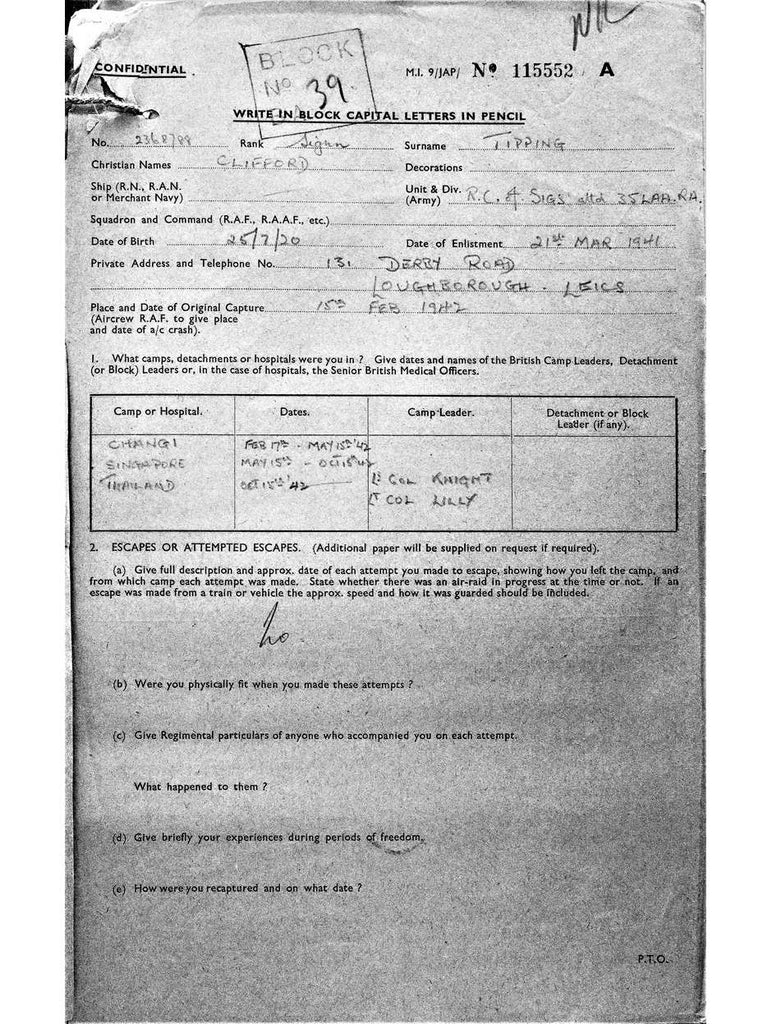 CONFIDENTIAL.
BLOCK
No 39.
M.I. 9/JAP/ No 115552 A
WRITE IN BLOCK CAPITAL LETTERS IN PENCIL
No. 2368788 Rank Signn Surname TIPPING
Christian Names CLIFFORD Decorations
Ship (R.N., R.A.N.
or Merchant Navy)
Unit & Div.
(Army) R.C. of SIGS attd 35 LAA.RA.
Squadron and Command (R.A.F., R.A.A.F., etc.)
Date of Birth 25/7/20 Date of Enlistment 21st MAR 1941
Private Address and Telephone No. 131 DERBY ROAD
LOUGHBOROUGH. LEICS
Place and Date of Original Capture 15th FEB 1942
(Aircrew R.A.F. to give place
and date of a/c crash).
1. What camps, detachments or hospitals were you in ? Give dates and names of the British Camp Leaders, Detachment
(or Block) Leaders or, in the case of hospitals, the Senior British Medical Officers.
Camp or Hospital. Dates. Camp Leader. Detachment or Block
Leader (if any).
CHANGI FEB 17th - MAY 15th '42
SINGAPORE MAY 15th - OCT 15th '42
THAILAND OCT 15th '42 Lt COL KNIGHT
Lt COL LILLY
2. ESCAPES OR ATTEMPTED ESCAPES. (Additional paper will be supplied on request if required).
(a) Give full description and approx. date of each attempt you made to escape, showing how you left the camp, and
from which camp each attempt was made. State whether there was an air-raid in progress at the time or not. If an
escape was made from a train or vehicle the approx. speed and how it was guarded should be included.
No.
(b) Were you physically fit when you made these attempts ?
(c) Give Regimental particulars of anyone who accompanied you on each attempt.
What happened to them ?
(d) Give briefly your experiences during periods of freedom.
(e) How were you recaptured and on what date ?
P.T.O.